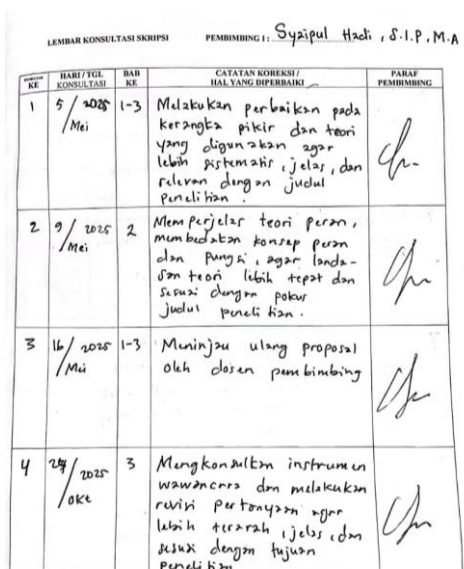 LEMBAR KONSULTASI SKRIPSI PEMBIMBING I : Syaipul Hadi, S.I.P, M.A
KE
HARI / TGL KONSULTASI
BAB KE
CATATAN KOREKSI / HAL YANG DIPERBAIKI
PARAF PEMBIMBING
1 5/Mei 2025 1-3 Melakukan perbaikan pada
kerangka pikir dan teori
yang digunakan agar
lebih sistematis, jelas, dan
relevan dengan judul
penelitian.
2 9/Mei 2025 2 Memperjelas teori peran,
membedakan konsep peran
dan pungsi, agar landa-
san teori lebih tepat dan
sesuai dengan pokus
judul penelitian.
3 16/Mei 2025 1-3 Meninjau ulang proposal
oleh dosen pembimbing
4 /Okt 2025 3 Mengkonsultan instrumen
wawancara dan melakukan
revisi pertanyaan agar
lebih terarah, jelas, dan
sesuai dengan tujuan
penelitian